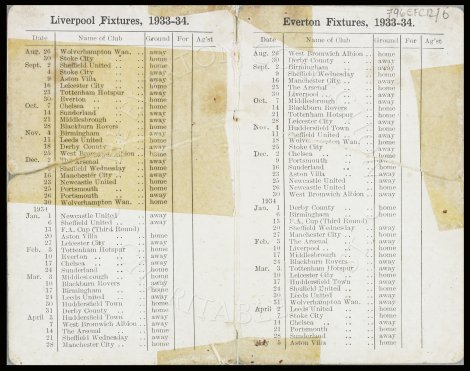 Liverpool Fixtures, 1933-34.
Date Name of Club Ground For Ag'st
Aug. 26 Wolverhampton Wan. away
30 Stoke City home
Sept. 2 Sheffield United home
4 Stoke City away
9 Aston Villa away
16 Leicester City home
23 Tottenham Hotspur away
30 Everton home
Oct. 7 Chelsea away
14 Sunderland away
21 Middlesbrough away
28 Blackburn Rovers home
Nov. 4 Birmingham away
11 Leeds United home
18 Derby County away
25 West Bromwich Albion home
Dec. 2 The Arsenal away
9 Sheffield Wednesday home
16 Manchester City away
23 Newcastle United home
25 Portsmouth home
26 Portsmouth away
30 Wolverhampton Wan. home
1934
Jan. 1 Newcastle United away
6 Sheffield United away
13 F.A. Cup (Third Round)
20 Aston Villa home
27 Leicester City away
Feb. 3 Tottenham Hotspur home
10 Everton away
17 Chelsea away
24 Sunderland home
Mar. 3 Middlesbrough home
10 Blackburn Rovers away
17 Birmingham home
24 Leeds United away
30 Huddersfield Town home
31 Derby County home
April 3 Huddersfield Town away
7 West Bromwich Albion away
14 The Arsenal home
21 Sheffield Wednesday away
28 Manchester City home
Everton Fixtures, 1933-34.
Date Name of Club Ground For Ag'st
Aug. 26 West Bromwich Albion home
30 Derby County away
Sept. 2 Birmingham away
9 Sheffield Wednesday home
16 Manchester City away
23 The Arsenal home
30 Liverpool away
Oct. 7 Middlesbrough home
14 Blackburn Rovers
21 Tottenham Hotspur
28 Leicester City
Nov. 4 Huddersfield Town
11 Sheffield United away
18 Wolverhampton Wan. home
25 Stoke City away
Dec. 2 Chelsea home
9 Portsmouth away
Sunderland home
23 Aston Villa away
25 Newcastle United
26 Newcastle United
30 West Bromwich Albion away
1934
Jan. 1 Derby County home
6 Birmingham home
13 F.A. Cup (Third Round)
20 Sheffield Wednesday away
27 Manchester City home
Feb. 3 The Arsenal away
10 Liverpool home
17 Middlesbrough
Blackburn Rovers
Mar. 3 Tottenham Hotspur
10 Leicester City
17 Huddersfield Town
24 Sheffield United home
30 Leeds United
31 Wolverhampton Wan.
April 2 Leeds United
Stoke City home
14 Chelsea away
21 Portsmouth home
28 Sunderland away
5 Aston Villa home